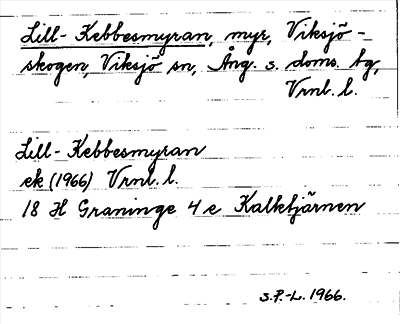 Lill-Kebbesmyran, myr, Viksjö-
skogen, Viksjö sn, Ång. s. doms. tg,
Vrnl. l.
Lill-Kebbesmyran
ek (1966) Vrnl. l.
18 H Graninge 4 e Kalktjärnen
S.P.-L. 1966.